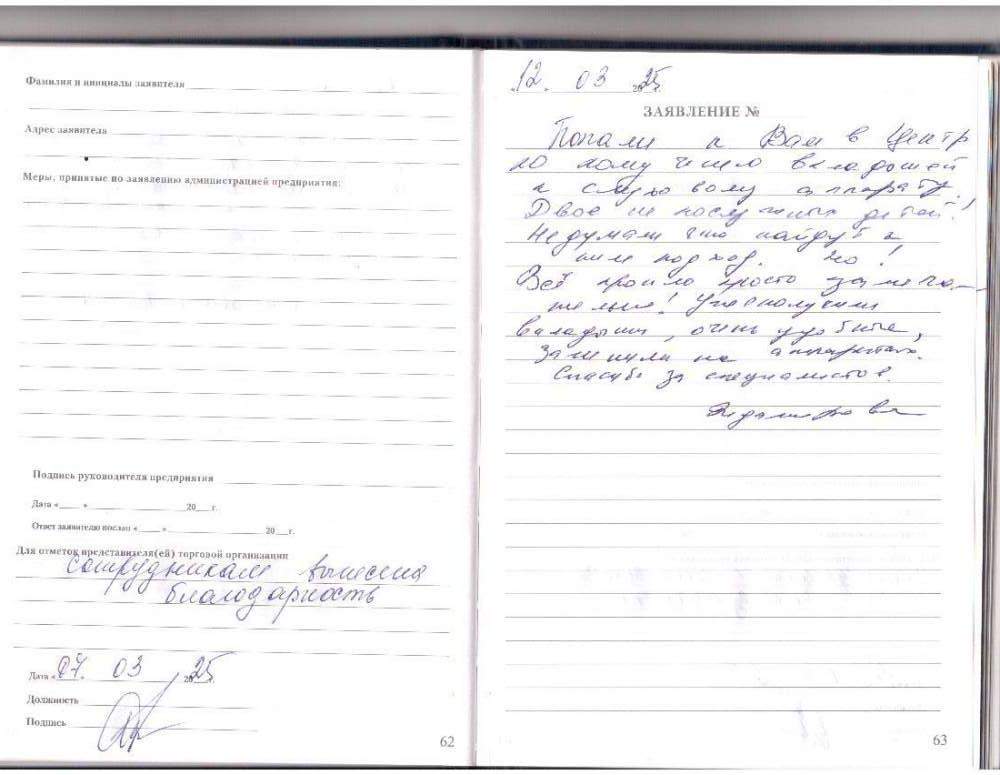 Фамилия и инициалы заявителя
Адрес заявителя
Меры, принятые по заявлению администрацией предприятия:
Подпись руководителя предприятия
Дата « » 20 г.
Ответ заявителю послан « » 20 г.
Для отметок представителя(ей) торговой организации
сотрудникам вынесена
благодарность
Дата «07» 03 2025 г.
Должность
Подпись
62
12. 03 2025
ЗАЯВЛЕНИЕ №
Попали к Вам в Центр
вкладышей
к слуховому аппарату.
Двое не послушных детей!
Не думали что найдут к
ним подход. Но!
Всё прошло просто замеча-
тельно! Уже получили
вкладыши, очень удобные,
заменили на аппаратах.
Спасибо за специалистов.
63